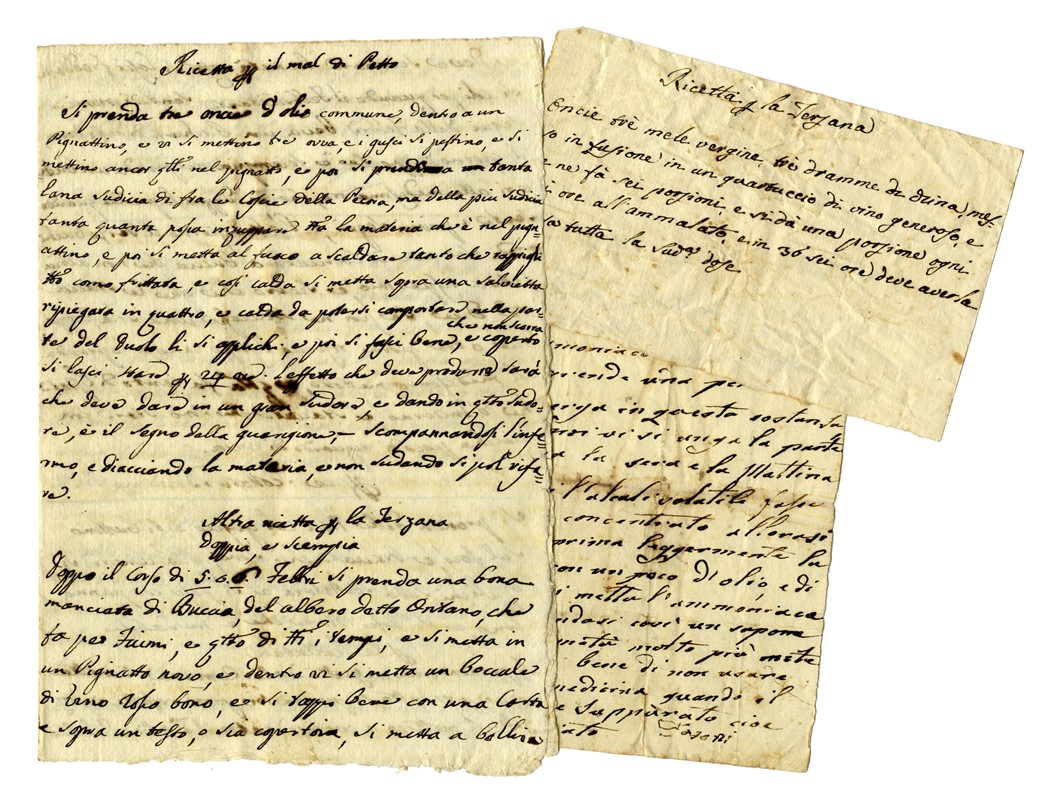 Ricetta p il mal di Petto
Si prenda tre oncie d'olio commune, dentro a un
Pignattino, e vi si mettino tre ova, e i gusci si pestino, e si
mettino ancor nel pignatto, e poi si prenda tanta
lana sudicia di fra le Coscie della Pecora, ma della più sudicia
tanta quanta possa inzuppare la materia che è nel pign-
attino, e poi si metta al fuoco a scaldare tanto che rappigli
come frittata, e così calda si metta sopra una salvietta
ripiegata in quattro, e calda da potersi comportare nella par-
te del duolo li si applichi, e poi si fasci bene, e coperto
che non scorra
si lasci stare p 24 ore. L'effetto che deve produrre sarà
che deve dare in un gran sudore, e dando in sudo=
re, è il segno della guarigione,- scompannandosi l'infe=
rmo, e diacciando la materia, e non sudando si può rifa=
re.
Altra ricetta p la Terzana
doppia, e scempia
Doppo il Corso di 5. o 6. Febbri si prenda una bona
manciata di Buccia, del albero detto Ontano, che
fa per Fiumi, e di i tempi, e si metta in
un Pignatto novo, e dentro vi si metta un boccale
di Vino rosso bono, e si toppi bene con una Carta
e sopra un testo, o sia copertoia, si metta a bollire
Ricetta p la Terzana
Oncie tré mele vergine, tré dramme di china, mes-
in fusione in un quartuccio di vino generoso, e
ne fà sei porzioni, e si dà una porzione ogni
ore all'ammalato, e in 36 sei ore deve averla
tutta la Sud.ª dose
moniac
rende una pe
in questa sostanza
vi si unga la parte
la sera e la Mattina
l'alcali volatile fosse
concentrato allora si
prima leggermente la
on un poco d'olio, e di
metta l'ammoniaca
dosi così un sapone
molto più mite
bene di non usare
medicina quando il
e suppurato cioe
ato